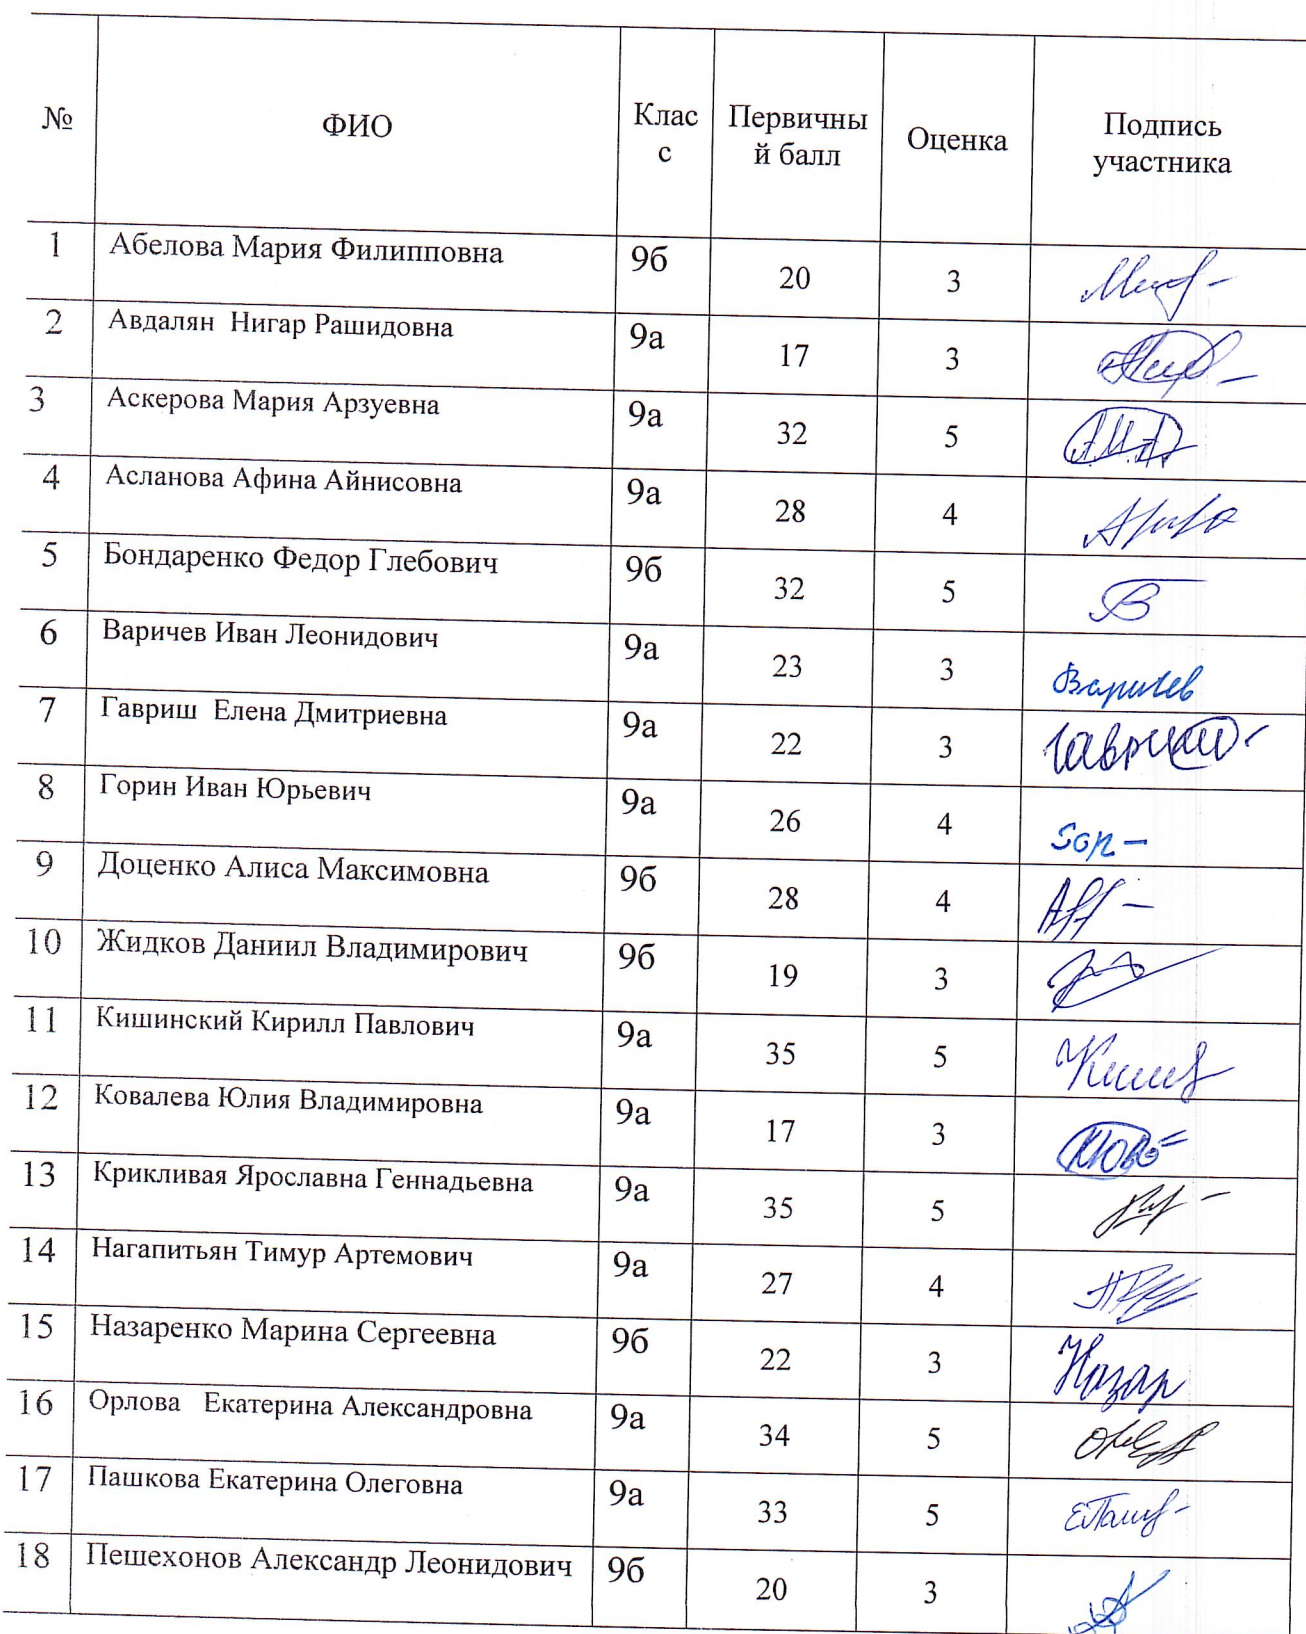 № ФИО Клас с Первичны й балл Оценка Подпись участника
1 Абелова Мария Филипповна 9б 20 3
2 Авдалян Нигар Рашидовна 9а 17 3
3 Аскерова Мария Арзуевна 9а 32 5 А.М.А.
4 Асланова Афина Айнисовна 9а 28 4
5 Бондаренко Федор Глебович 9б 32 5
6 Варичев Иван Леонидович 9а 23 3 Варичев
7 Гавриш Елена Дмитриевна 9а 22 3 Гавриш
8 Горин Иван Юрьевич 9а 26 4 Гор
9 Доценко Алиса Максимовна 9б 28 4
10 Жидков Даниил Владимирович 9б 19 3
11 Кишинский Кирилл Павлович 9а 35 5
12 Ковалева Юлия Владимировна 9а 17 3
13 Крикливая Ярославна Геннадьевна 9а 35 5
14 Нагапитьян Тимур Артемович 9а 27 4
15 Назаренко Марина Сергеевна 9б 22 3 Назар
16 Орлова Екатерина Александровна 9а 34 5
17 Пашкова Екатерина Олеговна 9а 33 5
18 Пешехонов Александр Леонидович 9б 20 3